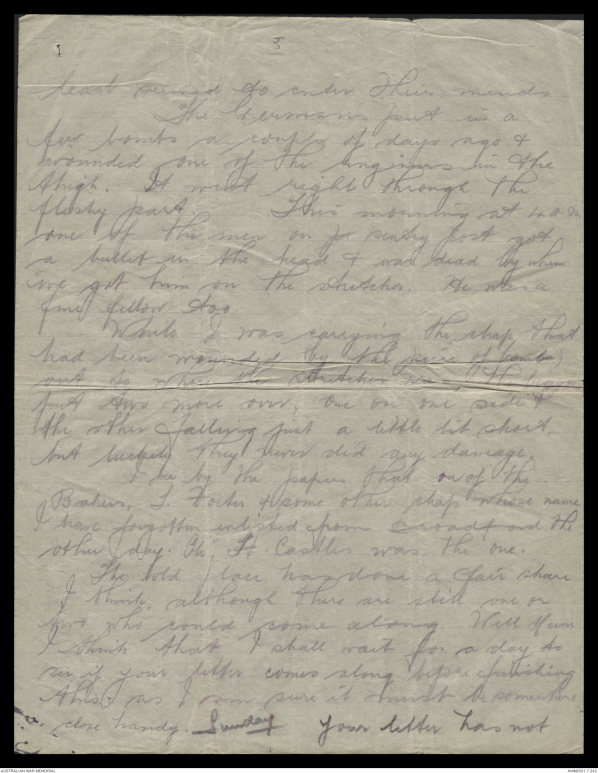 5
least seemed to enter their minds.
The Germans put in a
few bombs a couple of days ago &
wounded one of the engineers in the
thigh. It went right through the
fleshy part This morning at 4 a.m
one of the men on for sentry post got
a bullet in the head & was dead by when
we got him on the stretcher. He was a
fine fellow too
While I was carrying the chap that
had been wounded by the piece of bomb
out to where the stretcher was, the
put two more over, one on one side &
the other falling just a little bit short,
but luckily they never did any damage.
I see by the papers that one of the
Bakers, T. Foster & some other chap whose name
I have forgotten enlisted from and the
other day. Oh, H. Castles was the one.
The old place has done a fair share
I think, although there are still one or
two who could come along. Well Mum
I think that I shall wait for a day to
see if your letter comes along before finishing
this, as I am sure it must be somewhere
close handy. Sunday Your letter has not
AUSTRALIAN WAR MEMORIAL